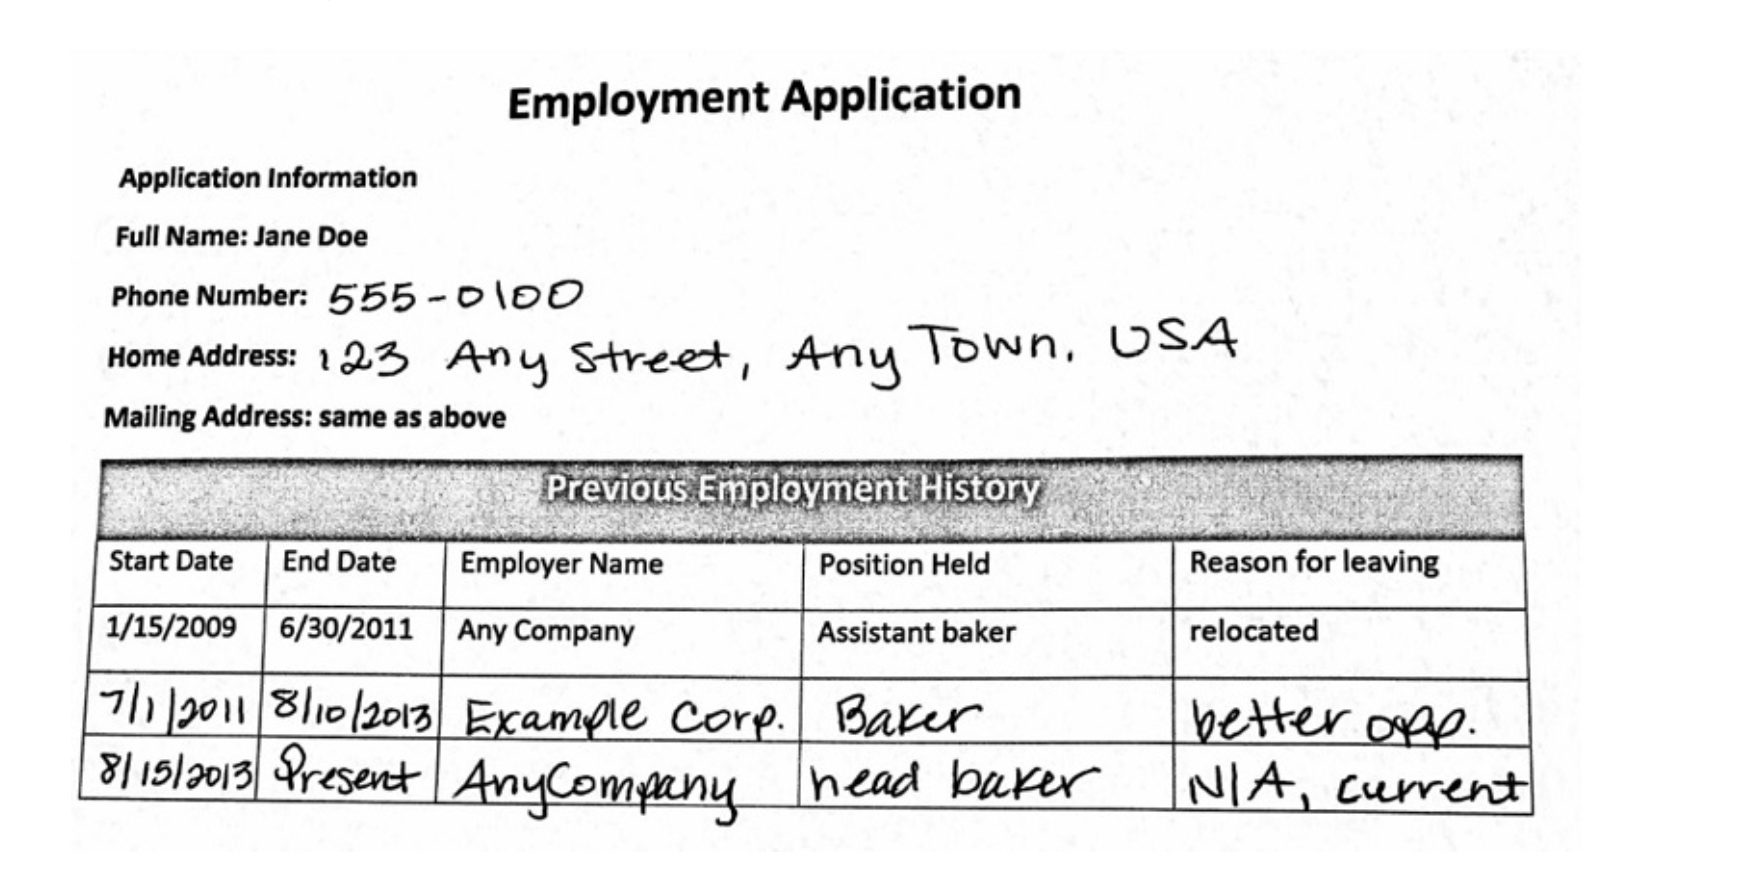 Employment Application
Application Information
Full Name: Jane Doe
Phone Number: 555-0100
Home Address: 123 Any Street, Any Town. USA
Mailing Address: same as above
Previous Employment History
Start Date End Date Employer Name Position Held Reason for leaving
1/15/2009 6/30/2011 Any Company Assistant baker relocated
7/1/2011 8/10/2013 Example Corp. Baker better opp.
8/15/2013 Present AnyCompany head baker N/A, current